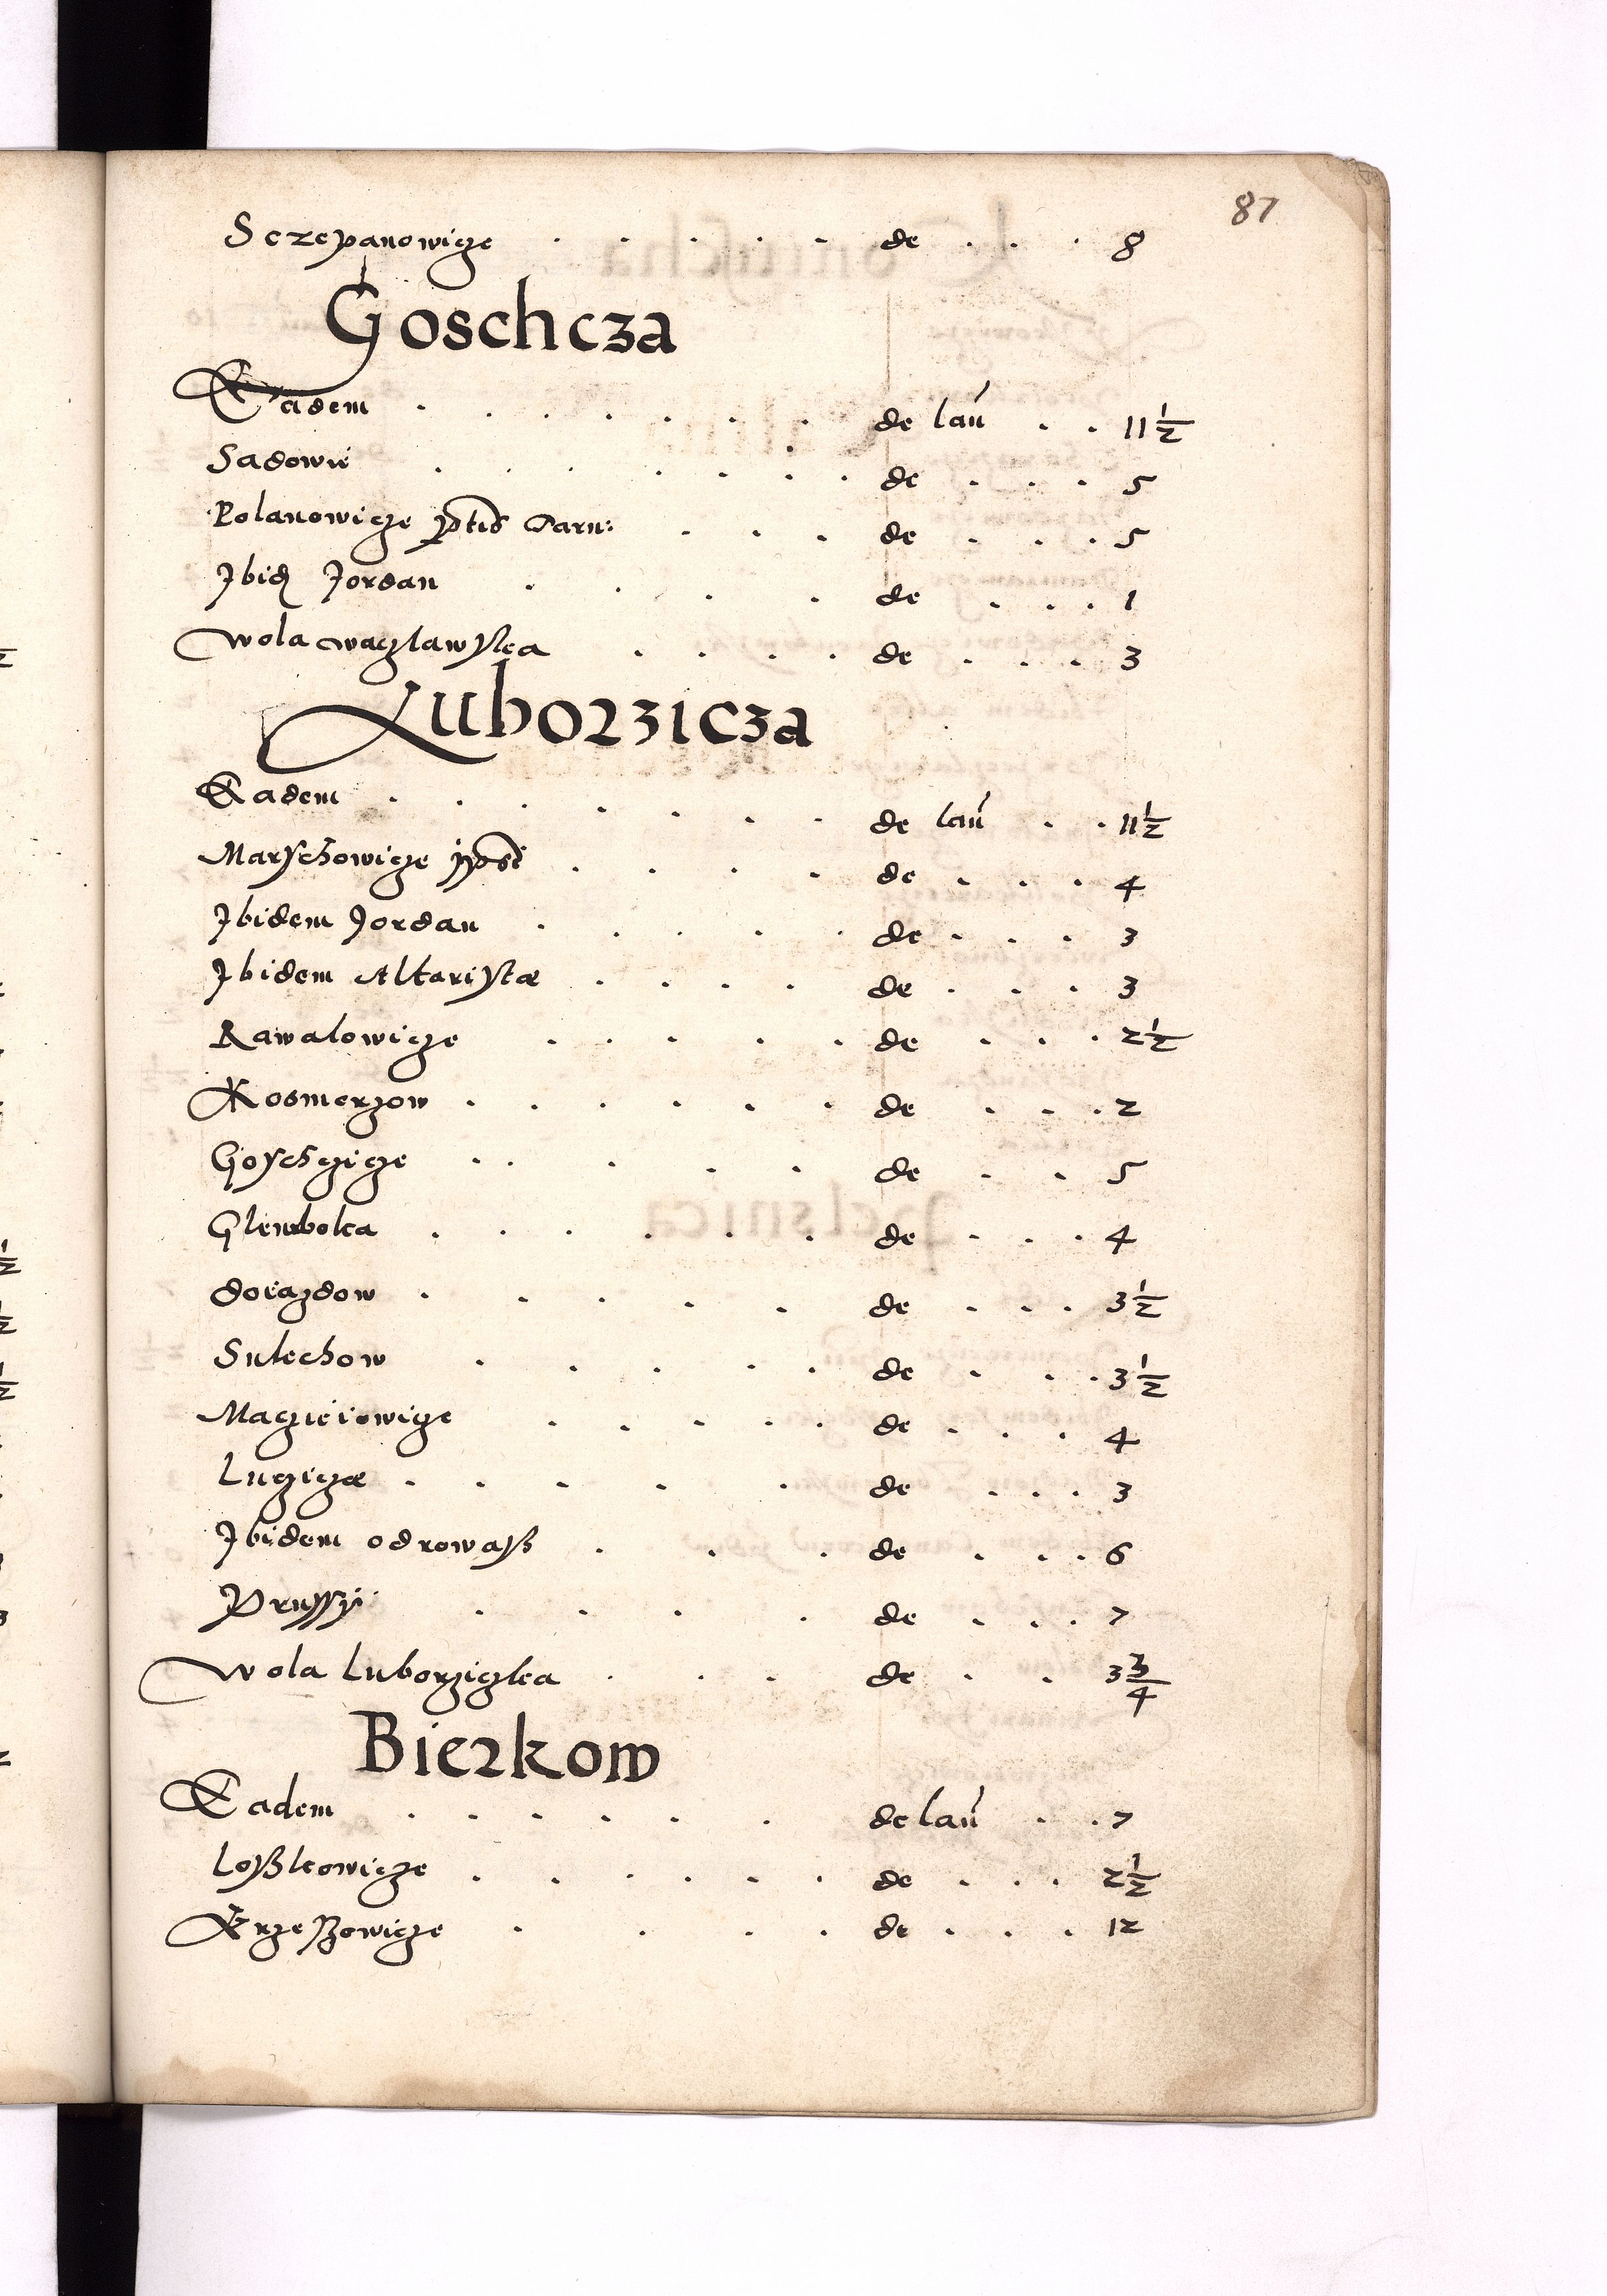 87
Sczepanowicze . . . . . de . . . 8
Goschcza
Eadem . . . . . . . de lan . . 11 1/2
Sadowie . . . . . . . de . . . 5
Polanowicze . . . de . . . 5
Ibid Jordan . . . . de . . . 1
Wola Waczlawska . . . . de . . . 3
Luborzicza
Eadem . . . . . . . de lan . . 11 1/2
Maryschowicze . . . . de . . . 4
Ibidem Jordan . . . . . de . . . 3
Ibidem Altaristæ . . . . de . . . 3
Rawalowicze . . . . . de . . . 2 1/2
Kosmerzow . . . . . . de . . . 2
Goyschczicze . . . . . de . . 5
Glemboka . . . . . . de . . . 4
doiazdow . . . . . de . . . 3 1/2
Sulechow . . . . . de . . . 3 1/2
Maczieiowicze . . . . . de . . . 4
Lucziczæ . . . . . de . . . 3
Ibidem odrowasz . . . de . . . 6
Prussy . . . . de . . . 7
Wola Luborziczka . . . de . . 3 3/4
Bierkow
Eadem . . . . . . de lan . . 7
Loszkowicze . . . . . . de . . . 2 1/2
Krzeszowicze . . . . de . . . 12